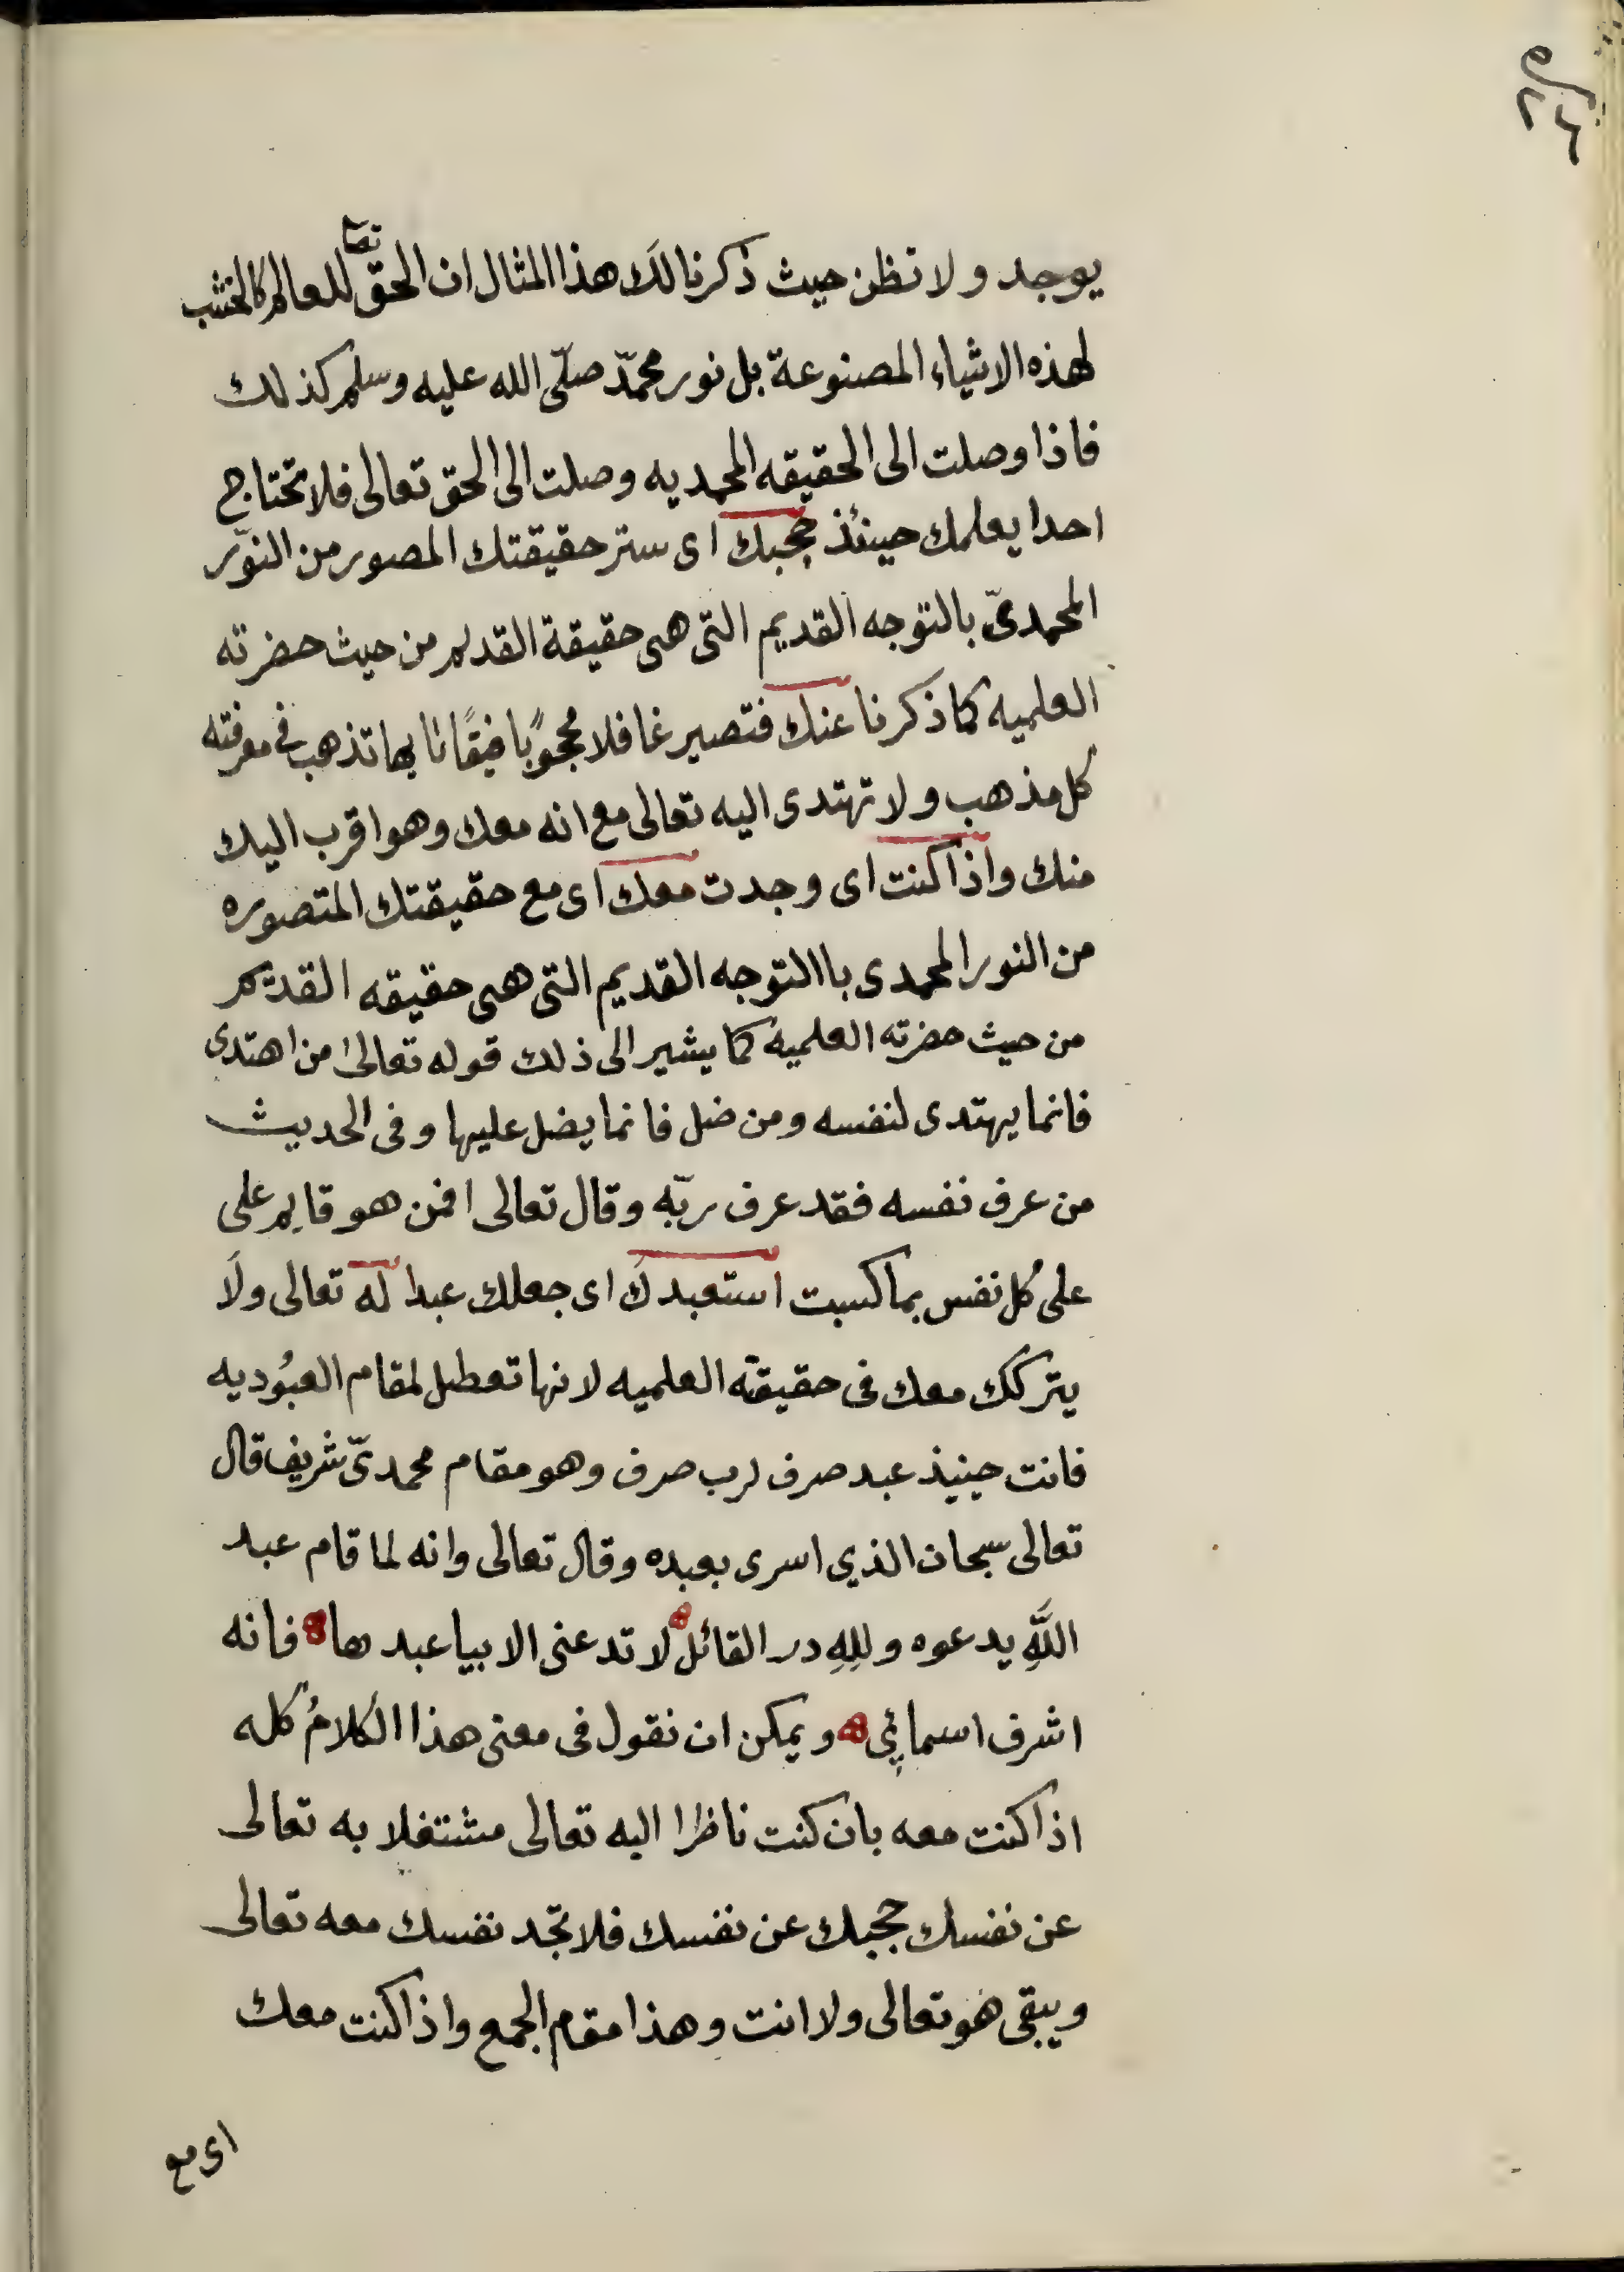 يوجد ولا تظن حيث ذكرنا لك هذا المثال ان الحقّ تعا للعالم كالخشب
لهذه الاشياء المصنوعة بل نور محمّد صلّى الله عليه وسلم كذلك
فاذا وصلت الى الحقيقه المحمديه وصلت الى الحق تعالى فلا تحتاج
احدا يعلمك حينئذ حجبك اى ستر حقيقتك المصور من النوّر
المحمدىّ بالتوجه القديم التى هى حقيقة القدلم من حيث حضرته
العلميه كما ذكرنا عنك فتصير غافلا محجوبًا تذهب فى معرفته
كل مذهب ولا تهتدى اليه تعالى مع انه معك وهو اقرب اليك
منك واذا كنت اى وجدت معك اى مع حقيقتك المتصوره
من النور المحمدى باالتوجه القديم التى هى حقيقه القديم
من حيث حضرته العلمية كما يشير الى ذلك قوله تعالى من اهتدى
فانما يهتدى لنفسه ومن ضل فانما يضل عليها وفى الحديث
من عرف نفسه فقد عرف ربّه وقال تعالى افمن هو قايم على
على كُل نفس بما كسبت استعبدك اى جعلك عبدا له تعالى ولَا
يتركك معك فى حقيقته العلميه لانها تعطل لمقام العبُوديه
فانت حينيذ عبد صرف لرب صرف وهو مقام محمدىّ شريف قال
تعالى سبحان الذي اسرى بعبده وقال تعالى وانه لما قام عبد
اللَّهِ يدعوه وللهِ در القائل لا تدعنى الا بيا عبدها فانه
اشرف اسمائِي ويمكن ان نقول فى معنى هذا الكلامُ كله
اذا كنت معه بان كنت ناظرا اليه تعالى مشتغلا به تعالى
عن نفسك حجبك عن نفسك فلا تجد نفسك معه تعالى
ويبقى هو تعالى ولا انت وهذا مقام الجمع واذا كنت معك
اى مع